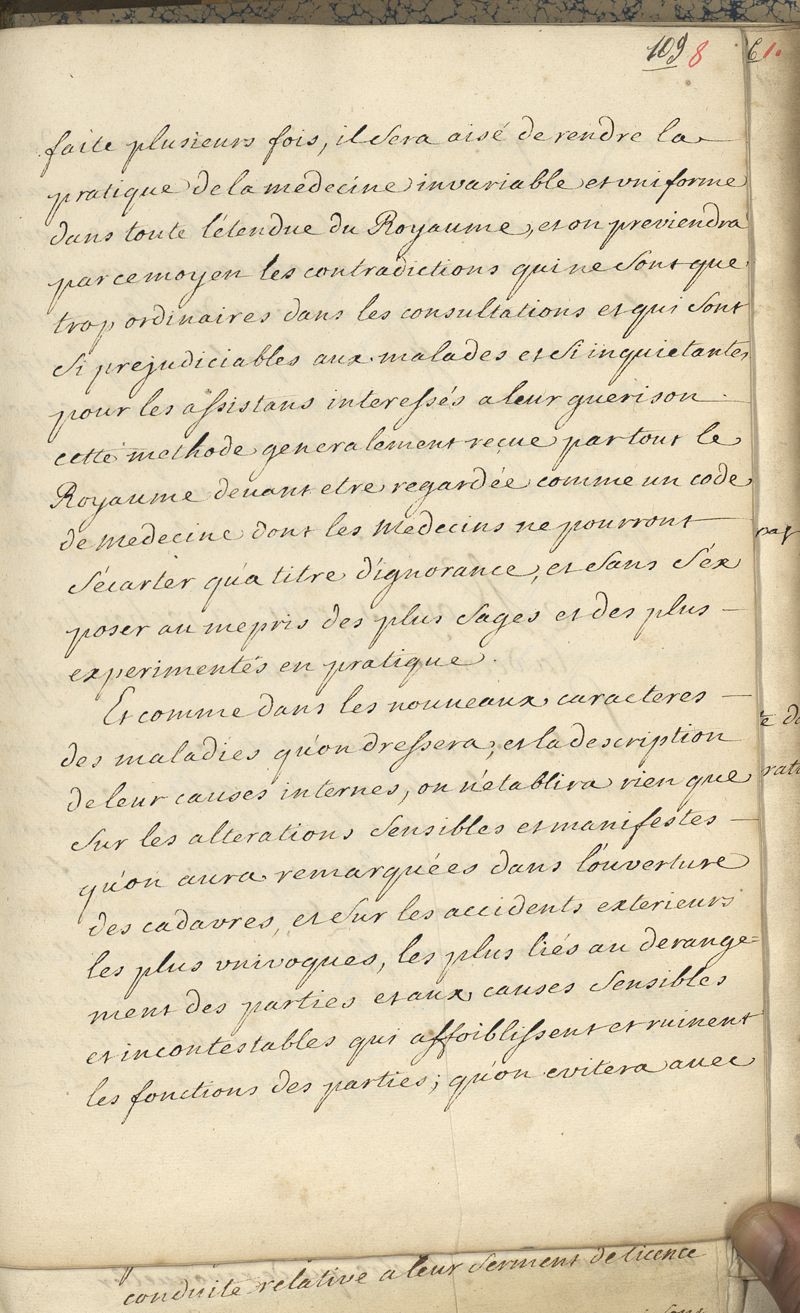 109 8 61.
faite plusieurs fois, il sera aisé de rendre la
pratique de la medecine invariable et uniforme
dans toute l'étendue du Royaume, et on previendra
par ce moyen les contradictions qui ne sont que
trop ordinaires dans les consultations et qui sont
si prejudiciables aux malades et si inquietantes
pour les assistans interessés a leur guerison.
cette methode generalement reçue par tout le
Royaume devant etre regardée comme un code
de medecine dont les medecins ne pourront
s'écarter qu'a titre d'ignorance, et sans s'ex
poser au mepris des plus sages et des plus
experimentés en pratique.
Et comme dans les nouveaux caracteres
des maladies qu'on dressera, et la description
de leur causes internes, on n'établira rien que
sur les alterations sensibles et manifestes
qu'on aura remarquées dans l'ouverture
des cadavres, et sur les accidents exterieurs
les plus univoques, les plus liés au derange=
ment des parties et aux causes sensibles
et incontestables qui affoiblissent et ruinent
les fonctions des parties; qu'on evitera avec
conduite relative a leur serment de licence